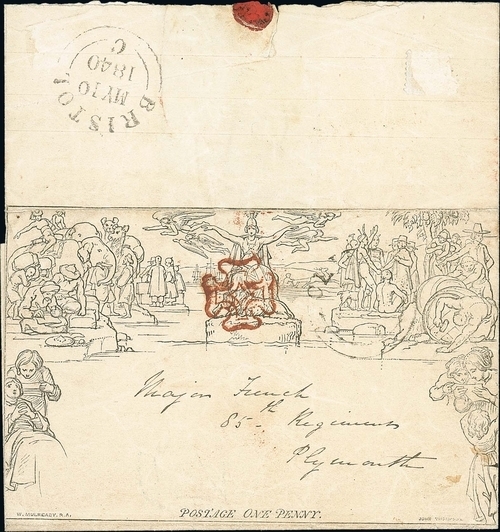 BRISTOL
MY 10
1840
C
Major French
85th Regiment
Plymouth
W. MULREADY, R.A.
POSTAGE ONE PENNY.
JOHN THOMPSON